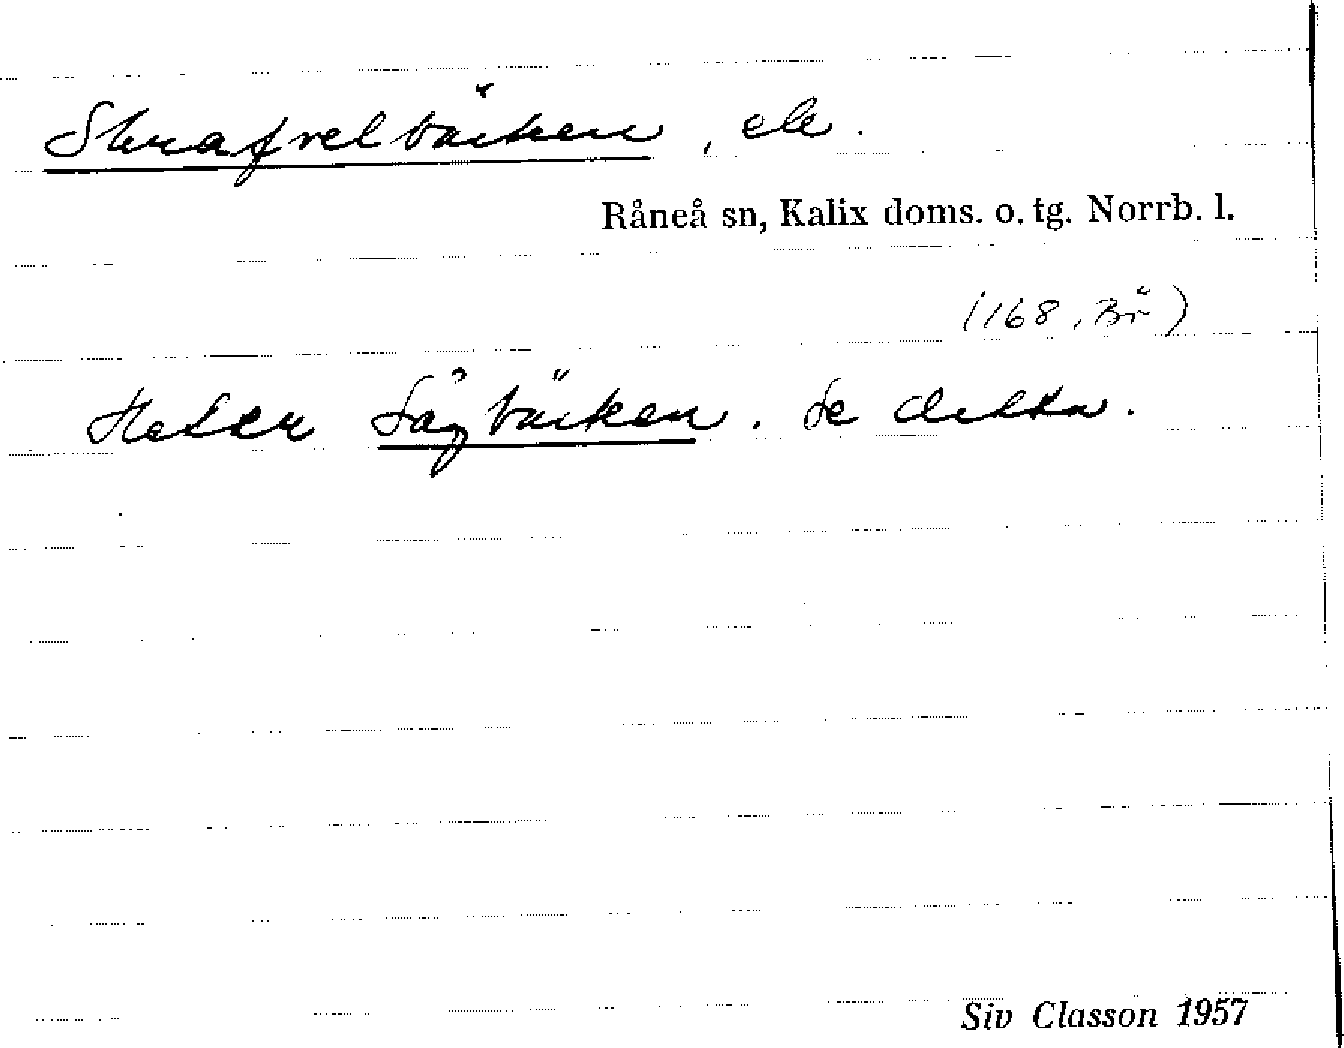 Skrafvelbäcken, ek.
Råneå sn, Kalix doms. o. tg. Norrb. l.
(168, Br)
Heter Sågbäcken. Se detta.
Siv Classon 1957